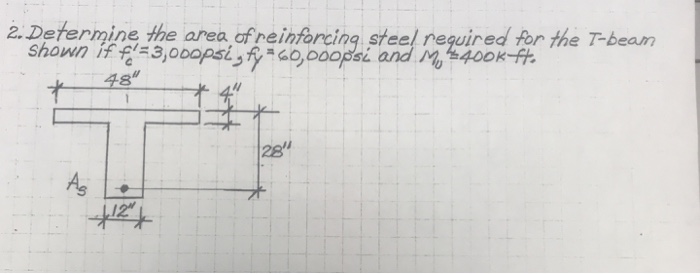 2. Determine the area of reinforcing steel required for the T-beam
shown if f'c = 3,000psi, fy = 60,000psi and Mu = 400k-ft.
48"
4"
28"
As
12"